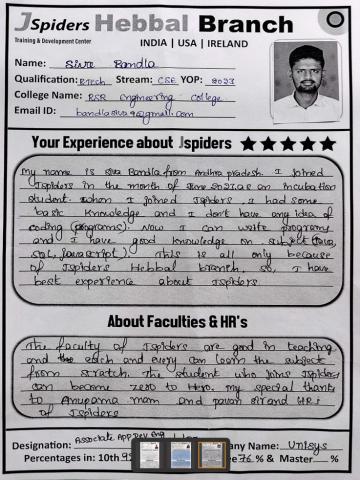 JSpiders Hebbal Branch
Training & Development Center
INDIA | USA | IRELAND
Name: Siva Bandla
Qualification: BTech Stream: CSE YOP: 2023
College Name: RSR Engineering College
Email ID: bandlasiva99@gmail.com
Your Experience about Jspiders
My name is Siva Bandla from Andhra pradesh. I joined
Jspiders in the month of June as an incubation
student. When I joined Jspiders, I had some
basic knowledge and I don't have any idea of
coding (programs). Now I can write programs
and I have good knowledge on subject (Java,
SQL, Javascript). This is all only because
of Jspiders Hebbal branch. So, I have
best experience about Jspiders
About Faculties & HR's
The faculty of Jspiders are good in teaching
and the each and every can learn the subject
from scratch. The student who joins Jspiders
can become zero to Hero. My special thanks
to Anupama mam and pavan sir and HR's
of Jspiders
Designation: Associate App Dev Eng
any Name: Unisys
Percentages in: 10th
76 % & Master %